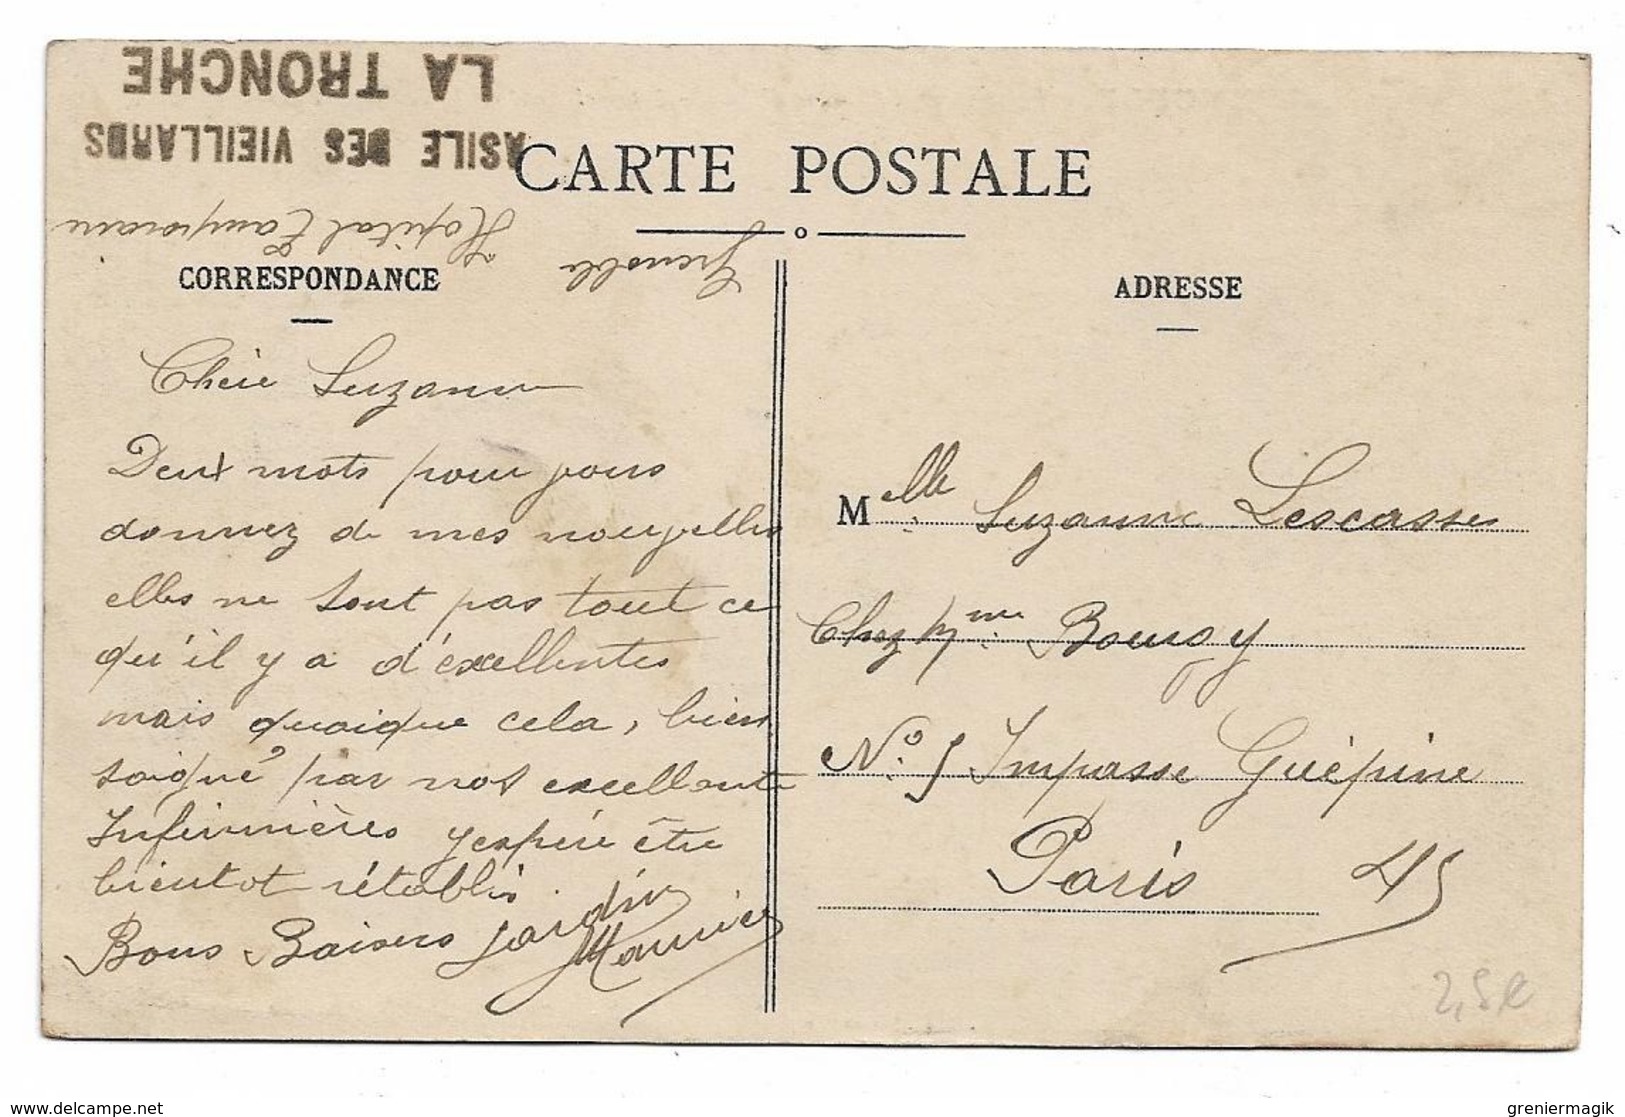 LA TRONCHE
ASILE DES VIEILLARDS
Hopital Temporaire
Grenoble
CARTE POSTALE
CORRESPONDANCE
ADRESSE
Chère Suzanne
Deux mots pour vous
donnez de mes nouvelles
elles ne sont pas tout ce
qu'il y a d'excellentes
mais quoique cela, bien
soiqué par nos excellente
Infirmières j'espère être
bientot rétablis.
Bons Baisers Jardin
Maurice
Melle Suzanne Lescasse
Chez Mme Bourgy
No. 5 Impasse Guépine
Paris 4
2,5€
delcampe.net
greniermagik